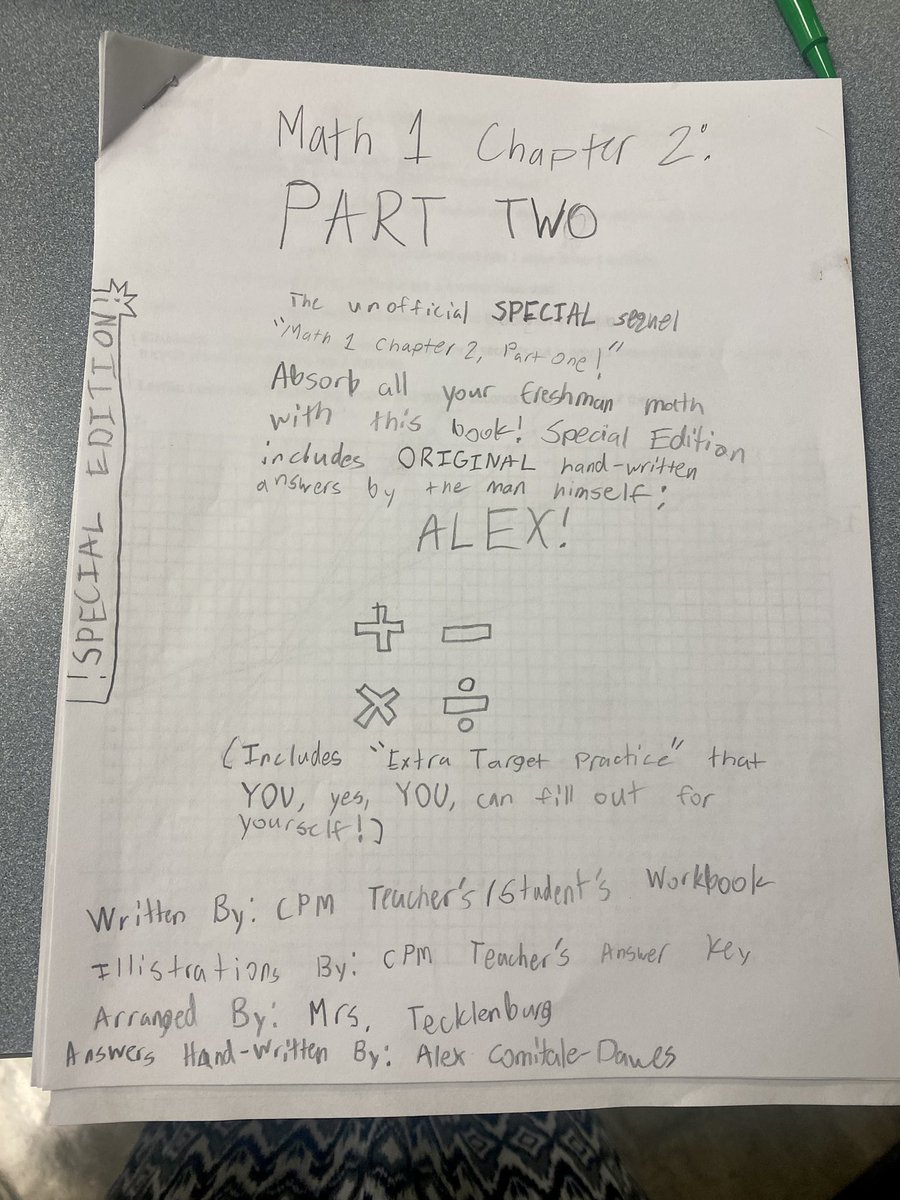 Math 1 Chapter 2:
PART TWO
The unofficial SPECIAL sequel
"Math 1 Chapter 2, Part One!"
Absorb all your freshman math
with this book! Special Edition
includes ORIGINAL hand-written
answers by the man himself:
ALEX!
+ −
× ÷
(Includes "Extra Target Practice" that
YOU, yes, YOU, can fill out for
yourself!)
Written By: CPM Teacher's/Student's Workbook
Illistrations By: CPM Teacher's Answer Key
Arranged By: Mrs. Tecklenburg
Answers Hand-Written By: Alex Comitale-Dawes
!SPECIAL EDITION!